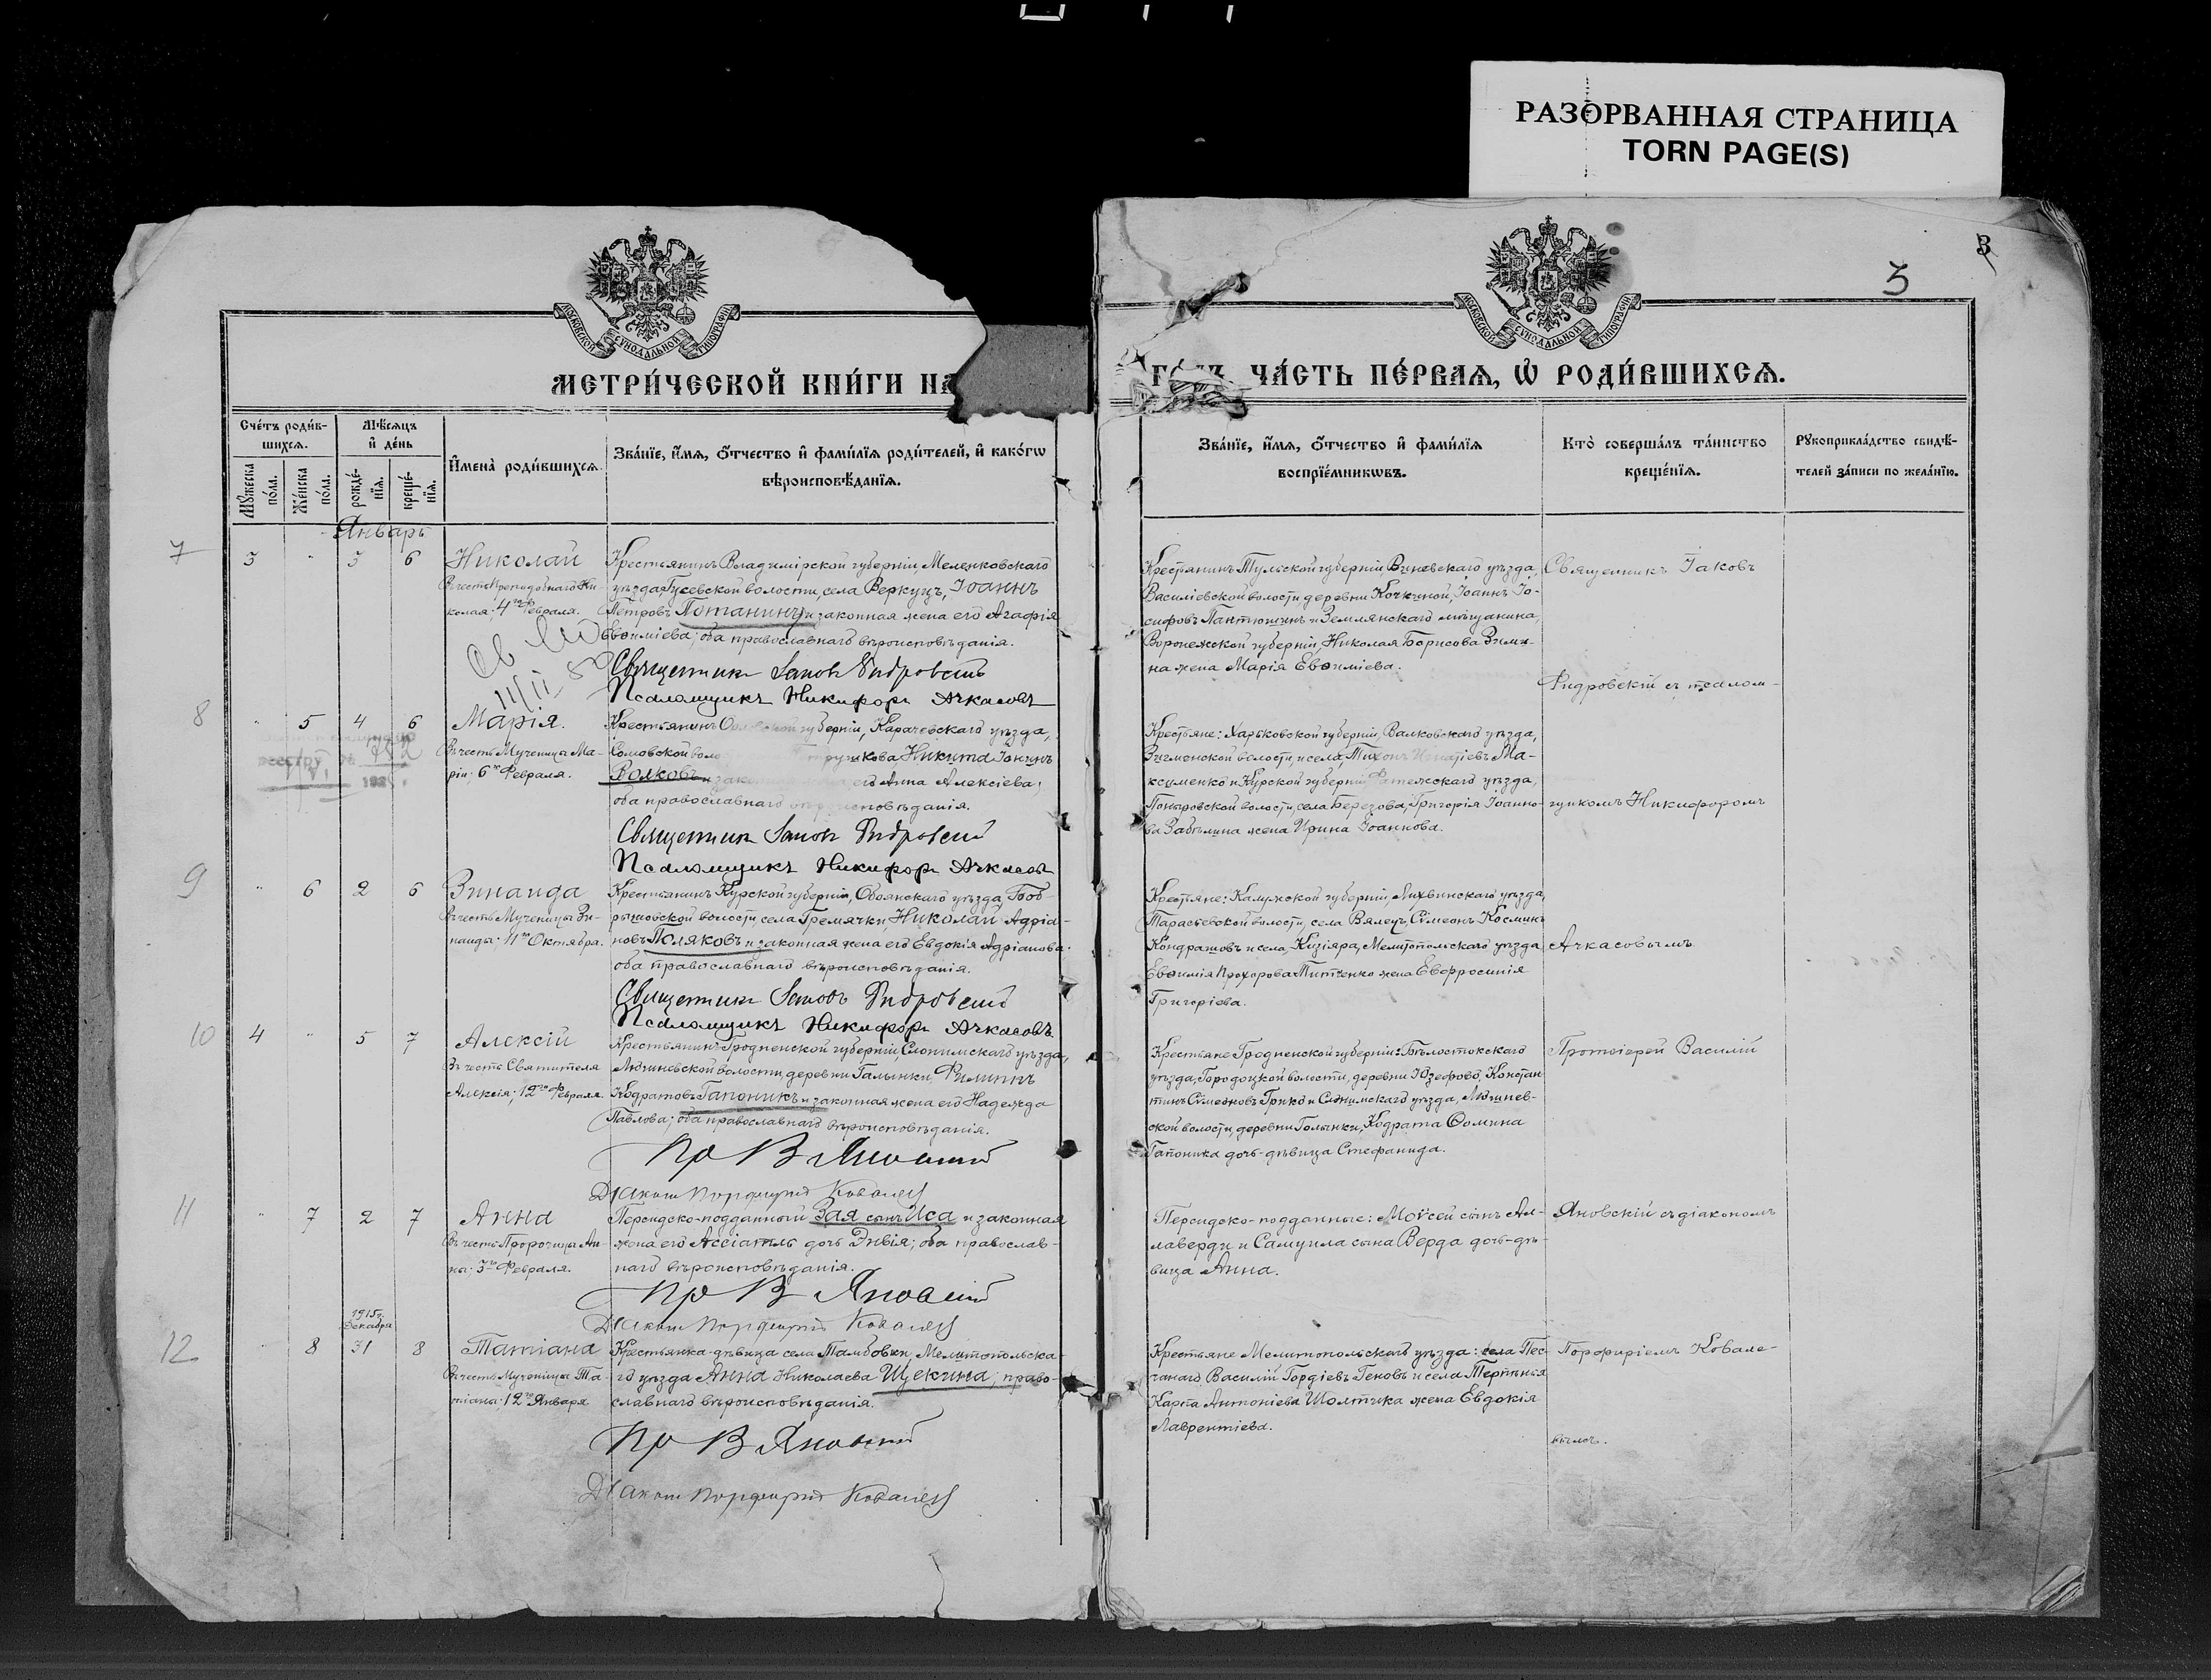 РАЗОРВАННАЯ СТРАНИЦА
TORN PAGE(S)
3
3
МОСКОВСКОЙ СѴНОДАЛЬНОЙ ТИПОГРАФІИ
МОСКОВСКОЙ СѴНОДАЛЬНОЙ ТИПОГРАФІИ
МЕТРИ́ЧЕСКОЙ КНИ́ГИ НА
ГОДЪ ЧА́СТЬ ПЕ́РВАЯ, Ѡ РОДИ́ВШИХСЯ.
Сче́тъ роди́в-
шихся.
Мѣ́сяцъ
и де́нь
Мꙋ́жеска
по́ла.
Же́нска
по́ла.
рожде́-
нїя.
креще́-
нїя.
И҆мена̀ роди́вшихся.
Зва́нїе, и҆́мя, ѻ҆́тчество и҆ фами́лїя роди́телей, и҆ како́гѡ
вѣроисповѣ́данїя.
Зва́нїе, и҆́мя, ѻ҆́тчество и҆ фами́лїя
воспрїе́мникѡвъ.
Кто̀ соверша́лъ та́инство
креще́нїя.
Рꙋкоприкла́дство свидѣ́-
телей за́писи по жела́нїю.
Январь
7 3 " 5 6 Николай
Въ честь Преподобнаго Ни-
колая; 4го Февраля.
Крестьянинъ Владимірской губерніи, Меленковскаго
уѣзда, Гусевской волости, села Веркуцъ, Іоаннъ
Петровъ Потанинъ и законная жена его Агафія
Евѳиміева; оба православнаго вѣроисповѣданія.
Священникъ Іаковъ Ридровскій
Псаломщикъ Никифоръ Ачкасовъ
Крестьянинъ Тульской губерніи, Веневскаго уѣзда,
Василіевской волости, деревни Кочкиной, Іоаннъ Іо-
сифовъ Пантюшинъ и Землянскаго мѣщанина,
Воронежской губерніи, Николая Борисова Зими-
на жена Марія Евѳиміева.
Священникъ Іаковъ
Ридровскій съ псалом-
8 " 5 4 6 Марія.
Въ честь Мученицы Ма-
ріи; 6го Февраля.
реестру № 752
Крестьянинъ губерніи, Карачевскаго уѣзда,
Никита Іоанновъ
Волковъ и его Анна Алексіева;
оба православнаго вѣроисповѣданія.
Священникъ Іаковъ Ридровскій
Псаломщикъ Никифоръ Ачкасовъ
Крестьяне: Харьковской губерніи, Валковскаго уѣзда,
волости, и села, Тихонъ Игнатіевъ Ма-
ксименко и Курской губерніи, Фатежскаго уѣзда,
Поныровской волости, села Березова, Григорія Іоанно-
ва Забѣлина жена Ирина Іоаннова.
щикомъ Никифоромъ
9 " 6 2 6 Зинаида
Въ честь Мученицы Зи-
наиды; 11го Октября.
Крестьянинъ Курской губерніи, Обоянскаго уѣзда, Боб-
рышовской волости, села Гремячки, Николай Адріа-
новъ Поляковъ и законная жена его Евдокія Адріанова;
оба православнаго вѣроисповѣданія.
Священникъ Іаковъ Ридровскій
Псаломщикъ Никифоръ Ачкасовъ
Крестьяне: Калужской губерніи, Лихвинскаго уѣзда,
Тарасьевской волости, села Вялецъ, Сѵмеонъ Косминъ
Кондрашовъ и села, Кизіяра, Мелитопольскаго уѣзда,
Евѳимія Прохорова Титченко жена Евфросинія
Григоріева.
Ачкасовымъ
10 4 " 5 7 Алексій
Въ честь Святителя
Алексія; 12го Февраля.
Крестьянинъ Гродненской губерніи, Слонимскаго уѣзда,
волости, деревни Галынки, Филиппъ
Кодратовъ Гапоникъ и законная жена его Надежда
Павлова; оба православнаго вѣроисповѣданія.
Пр В Яновскій
Діаконъ Порфирій Ковалевъ
Крестьяне Гродненской губерніи: Бѣлостокскаго
уѣзда, Городоцкой волости, деревни Юзефово, Констан-
тинъ Сѵмеоновъ Грико и Слонимскаго уѣзда,
ской волости, деревни Голынки, Кодрата Ѳомина
Гапоника дочь-дѣвица Стефанида.
Протоіерей Василій
11 " 7 2 7 Анна
Въ честь Пророчицы Ан-
ны; 3го Февраля.
Персидско-подданный Зая сынъ Иса и законная
жена его Ассіатль дочь Энвія; оба православ-
наго вѣроисповѣданія.
Пр В Яновскій
Діаконъ Порфирій Ковалевъ
Персидско-подданные: Моѵсей сынъ Ал-
лаверди и Самуила сына Верда дочь-дѣ-
вица Анна.
Яновскій съ діакономъ
1915г.
Декабря
12 " 8 31 8 Татіана
Въ честь Мученицы Та-
тіаны; 12го Января
Крестьянка-дѣвица села Тамбовки, Мелитопольска-
го уѣзда Анна Николаева Щекина; право-
славнаго вѣроисповѣданія.
Пр В Яновскій
Діаконъ Порфирій Ковалевъ
Крестьяне Мелитопольскаго уѣзда: села Пес-
чанаго Василій Гордіевъ Геновъ и села Терпѣнья
Карпа Антоніева Шолтика жена Евдокія
Лаврентіева.
Порфиріемъ Ковале-
вымъ.